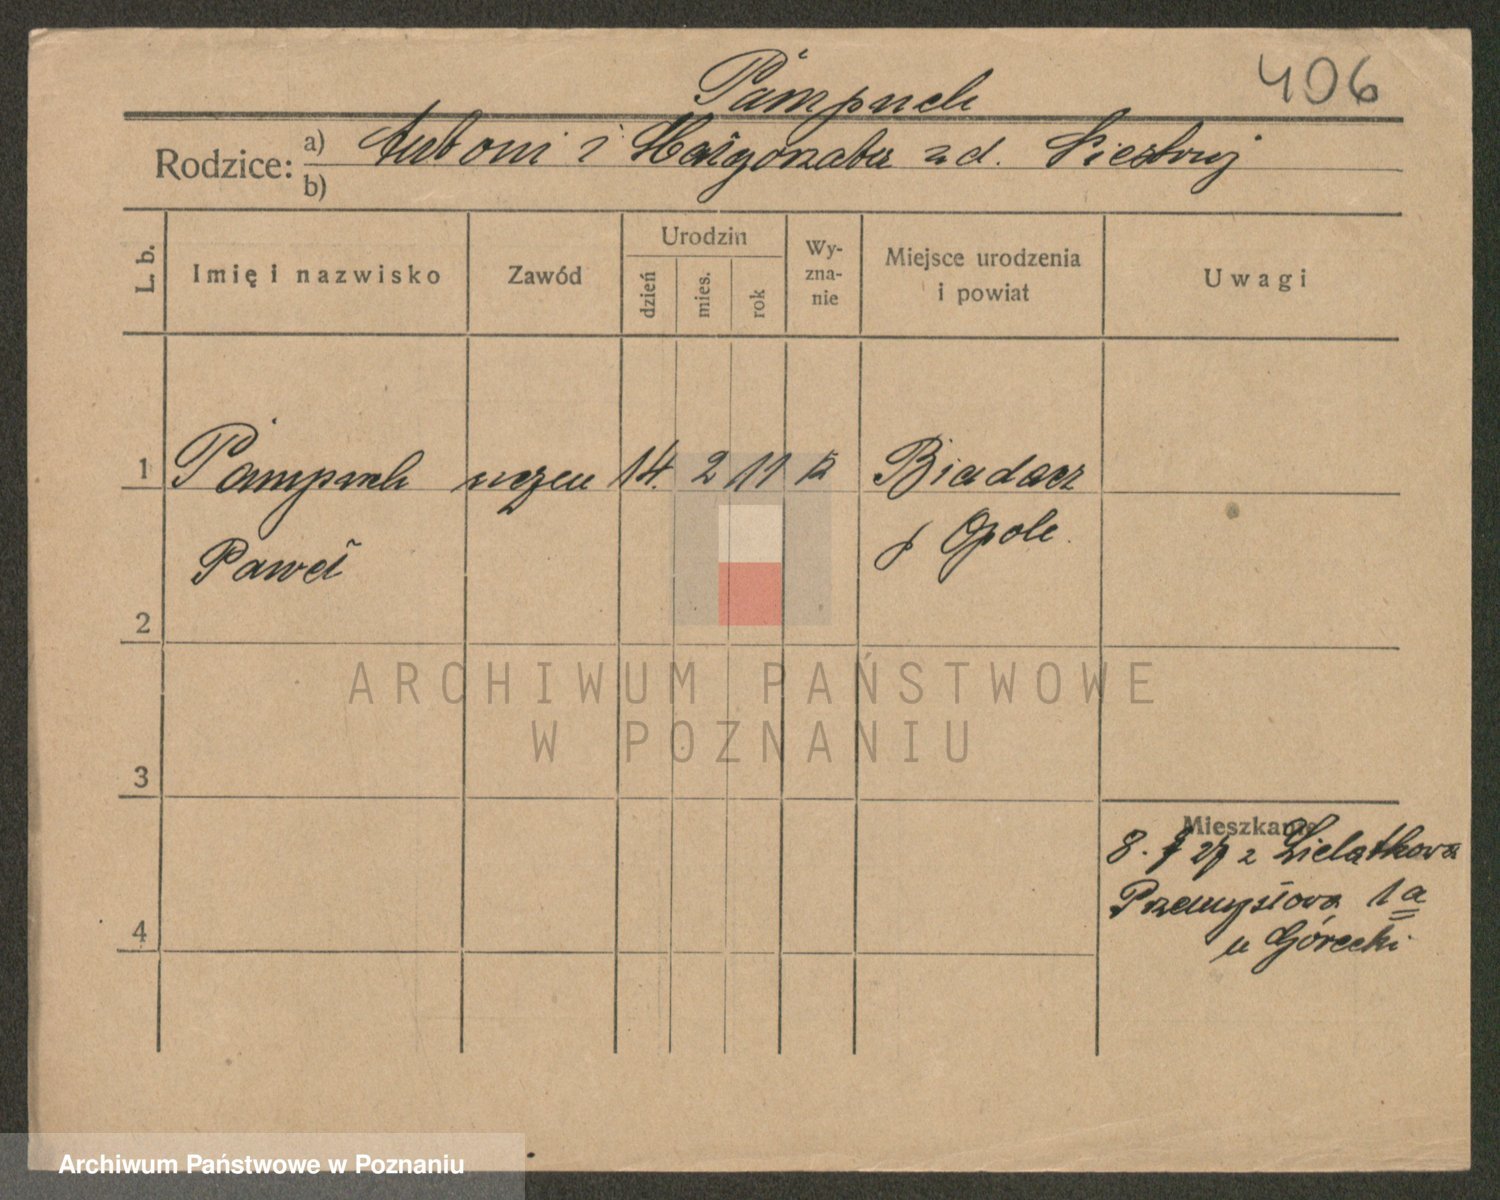 406
Pampuch
Rodzice: a) Antoni i Małgorzata z d.
b)
L. b.
Imię i nazwisko
Zawód
Urodzin
dzień
mies.
rok
Wy-
zna-
nie
Miejsce urodzenia
i powiat
Uwagi
1 Pampuch uczeń 14. 2 11 k Biadacz
Paweł p Opole
2
ARCHIWUM PAŃSTWOWE
W POZNANIU
3
Mieszkanie
8. 9 27 z Zielątkowa
Przemysłowa 1a
u Górecki
4
Archiwum Państwowe w Poznaniu